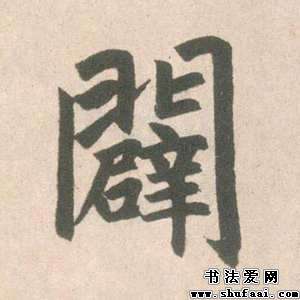 闢
书法爱网
www.shufaai.com